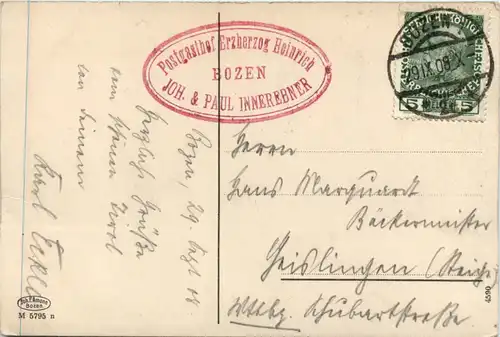 Postgasthof Erzherzog Heinrich
BOZEN
JOH. & PAUL INNEREBNER
BOZEN
5 5
Bozen, 29. Sept 08.
Herzliche Grüße
vom schönen Tirol
von Deinem
Karl
Herrn
Hans Marquardt
Bäckermeister
Geislingen (Steige)
Wttbg. Schubartstraße
Joh. F. Amonn
Bozen
M 5795 n
4590